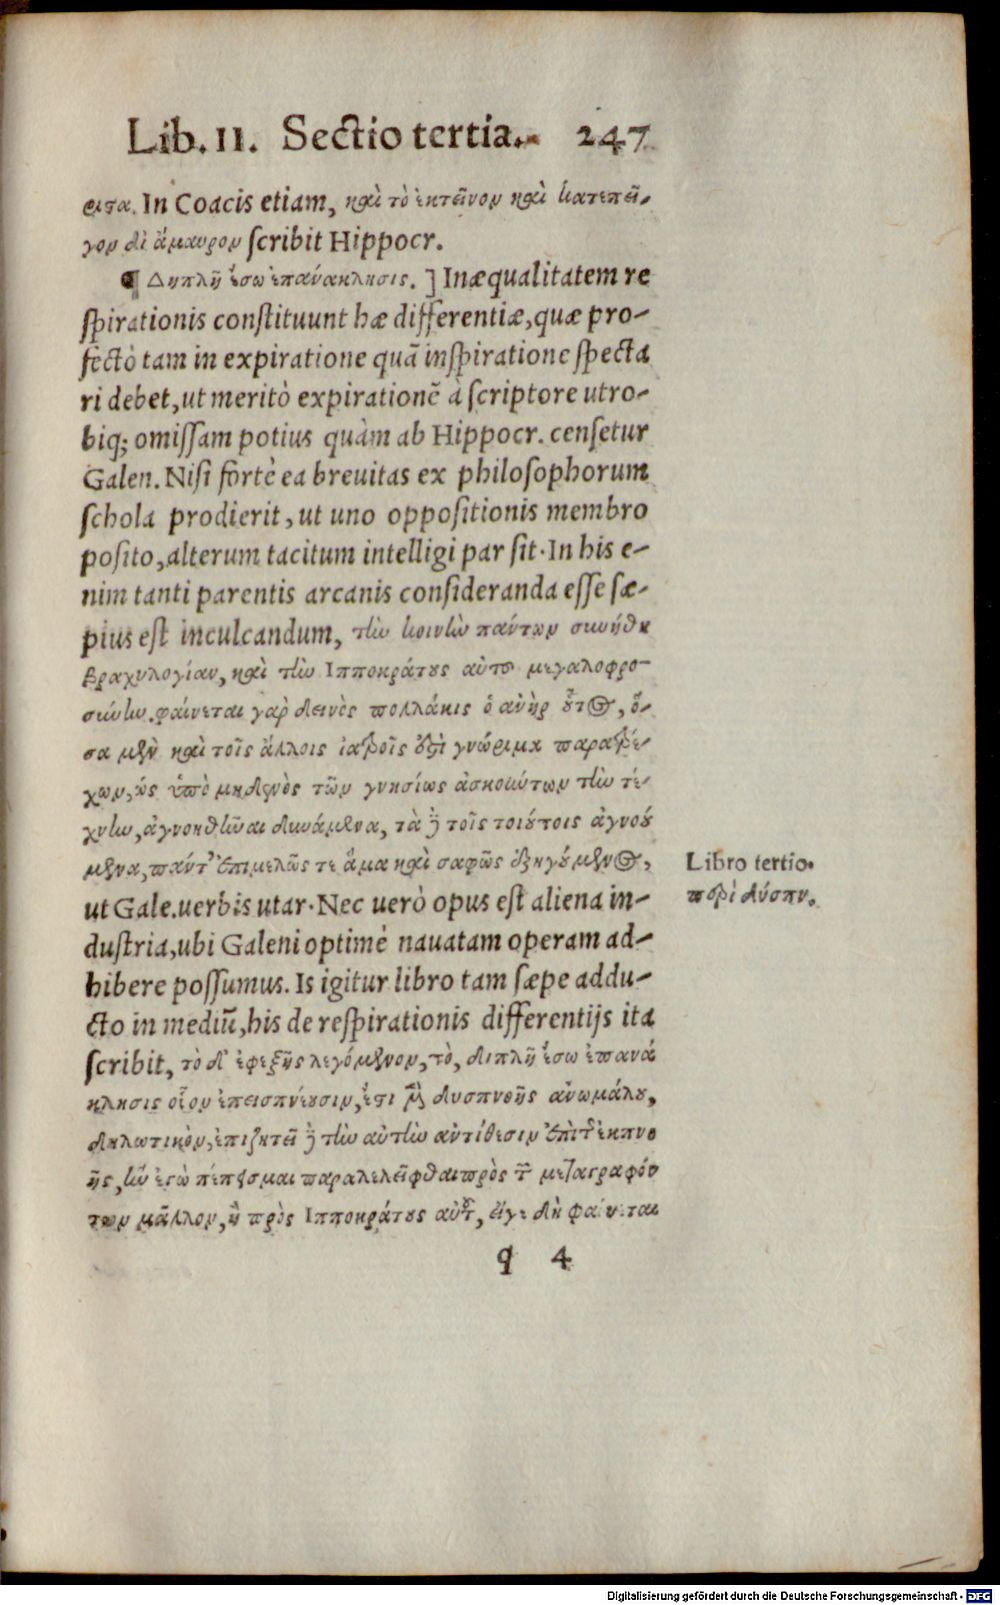 Lib. II. Sectio tertia. 247
ϱιστα. In Coacis etiam, καὶ τὸ ἐκτεῖνον καὶ κατεπεῖ-
γον δὲ ἀμαυρον scribit Hippocr.
¶ Διπλῆ ἔσω ἐπανάκλησις. ] Inæqualitatem re
spirationis constituunt hæ differentiæ, quæ pro-
fectò tam in expiratione quã inspiratione specta
ri debet, ut meritò expirationẽ à scriptore utro-
biq; omissam potius quàm ab Hippocr. censetur
Galen. Nisi fortè ea breuitas ex philosophorum
schola prodierit, ut uno oppositionis membro
posito, alterum tacitum intelligi par sit. In his e-
nim tanti parentis arcanis consideranda esse sæ-
pius est inculcandum, τὴν κοινὴν πάντων συνήθη
βραχυλογίαν, καὶ τὴν Ιπποκράτους αὐτοῦ μεγαλοφρο-
σύνην. φαίνεται γὰρ δεινὸς πολλάκις ὁ ἀνὴρ οὗτος, ὅ-
σα μὲν καὶ τοῖς ἄλλοις ἰατροῖς ἐστὶ γνώριμα παρατρέ-
χων, ὡς ὑπὸ μηδενὸς τῶν γνησίως ἀσκούντων τὴν τέ-
χνην, ἀγνοηθῆναι δυνάμενα, τὰ δὲ τοῖς τοιούτοις ἀγνού
μενα, πάντ' ἐπιμελῶς τε ἅμα καὶ σαφῶς ἐξηγούμενος,
Libro tertio.
περὶ δύσπν.
ut Gale. uerbis utar. Nec uerò opus est aliena in-
dustria, ubi Galeni optimè nauatam operam ad-
hibere possumus. Is igitur libro tam sæpe addu-
cto in mediũ, his de respirationis differentijs ita
scribit, τὸ δ' ἐφεξῆς λεγόμενον, τὸ, διπλῆ ἔσω ἐπανά
κλησις οἷον ἐπεισπνέουσιν, ἔστι μὲν δυσπνοῆς ἀνωμάλου,
δηλωτικὸν, ἐπιζητεῖ δὲ τὴν αὐτὴν ἀντίθεσιν ἐπὶ τ̃ ἐκπνο
ῆς, ἣν ἐγὼ πέπεισμαι παραλελεῖφθαι πρὸς τῶν μεταγραφόν
των μᾶλλον, ἢ πρὸς Ιπποκράτους αὐτοῦ, εἴγε δὴ φαίνεται
q 4
Digitalisierung gefördert durch die Deutsche Forschungsgemeinschaft - DFG